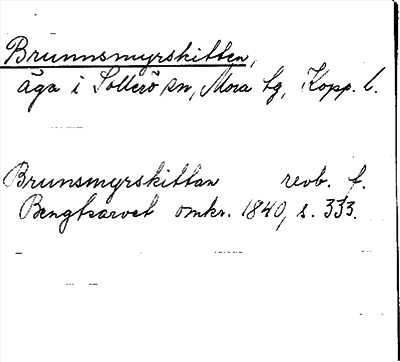 Brunnsmyrskitten,
äga i Sollerö sn, Mora tg, Kopp. l.
Brunsmyrskittan revb. f.
Bengtsarvet omkr. 1840, s. 333.